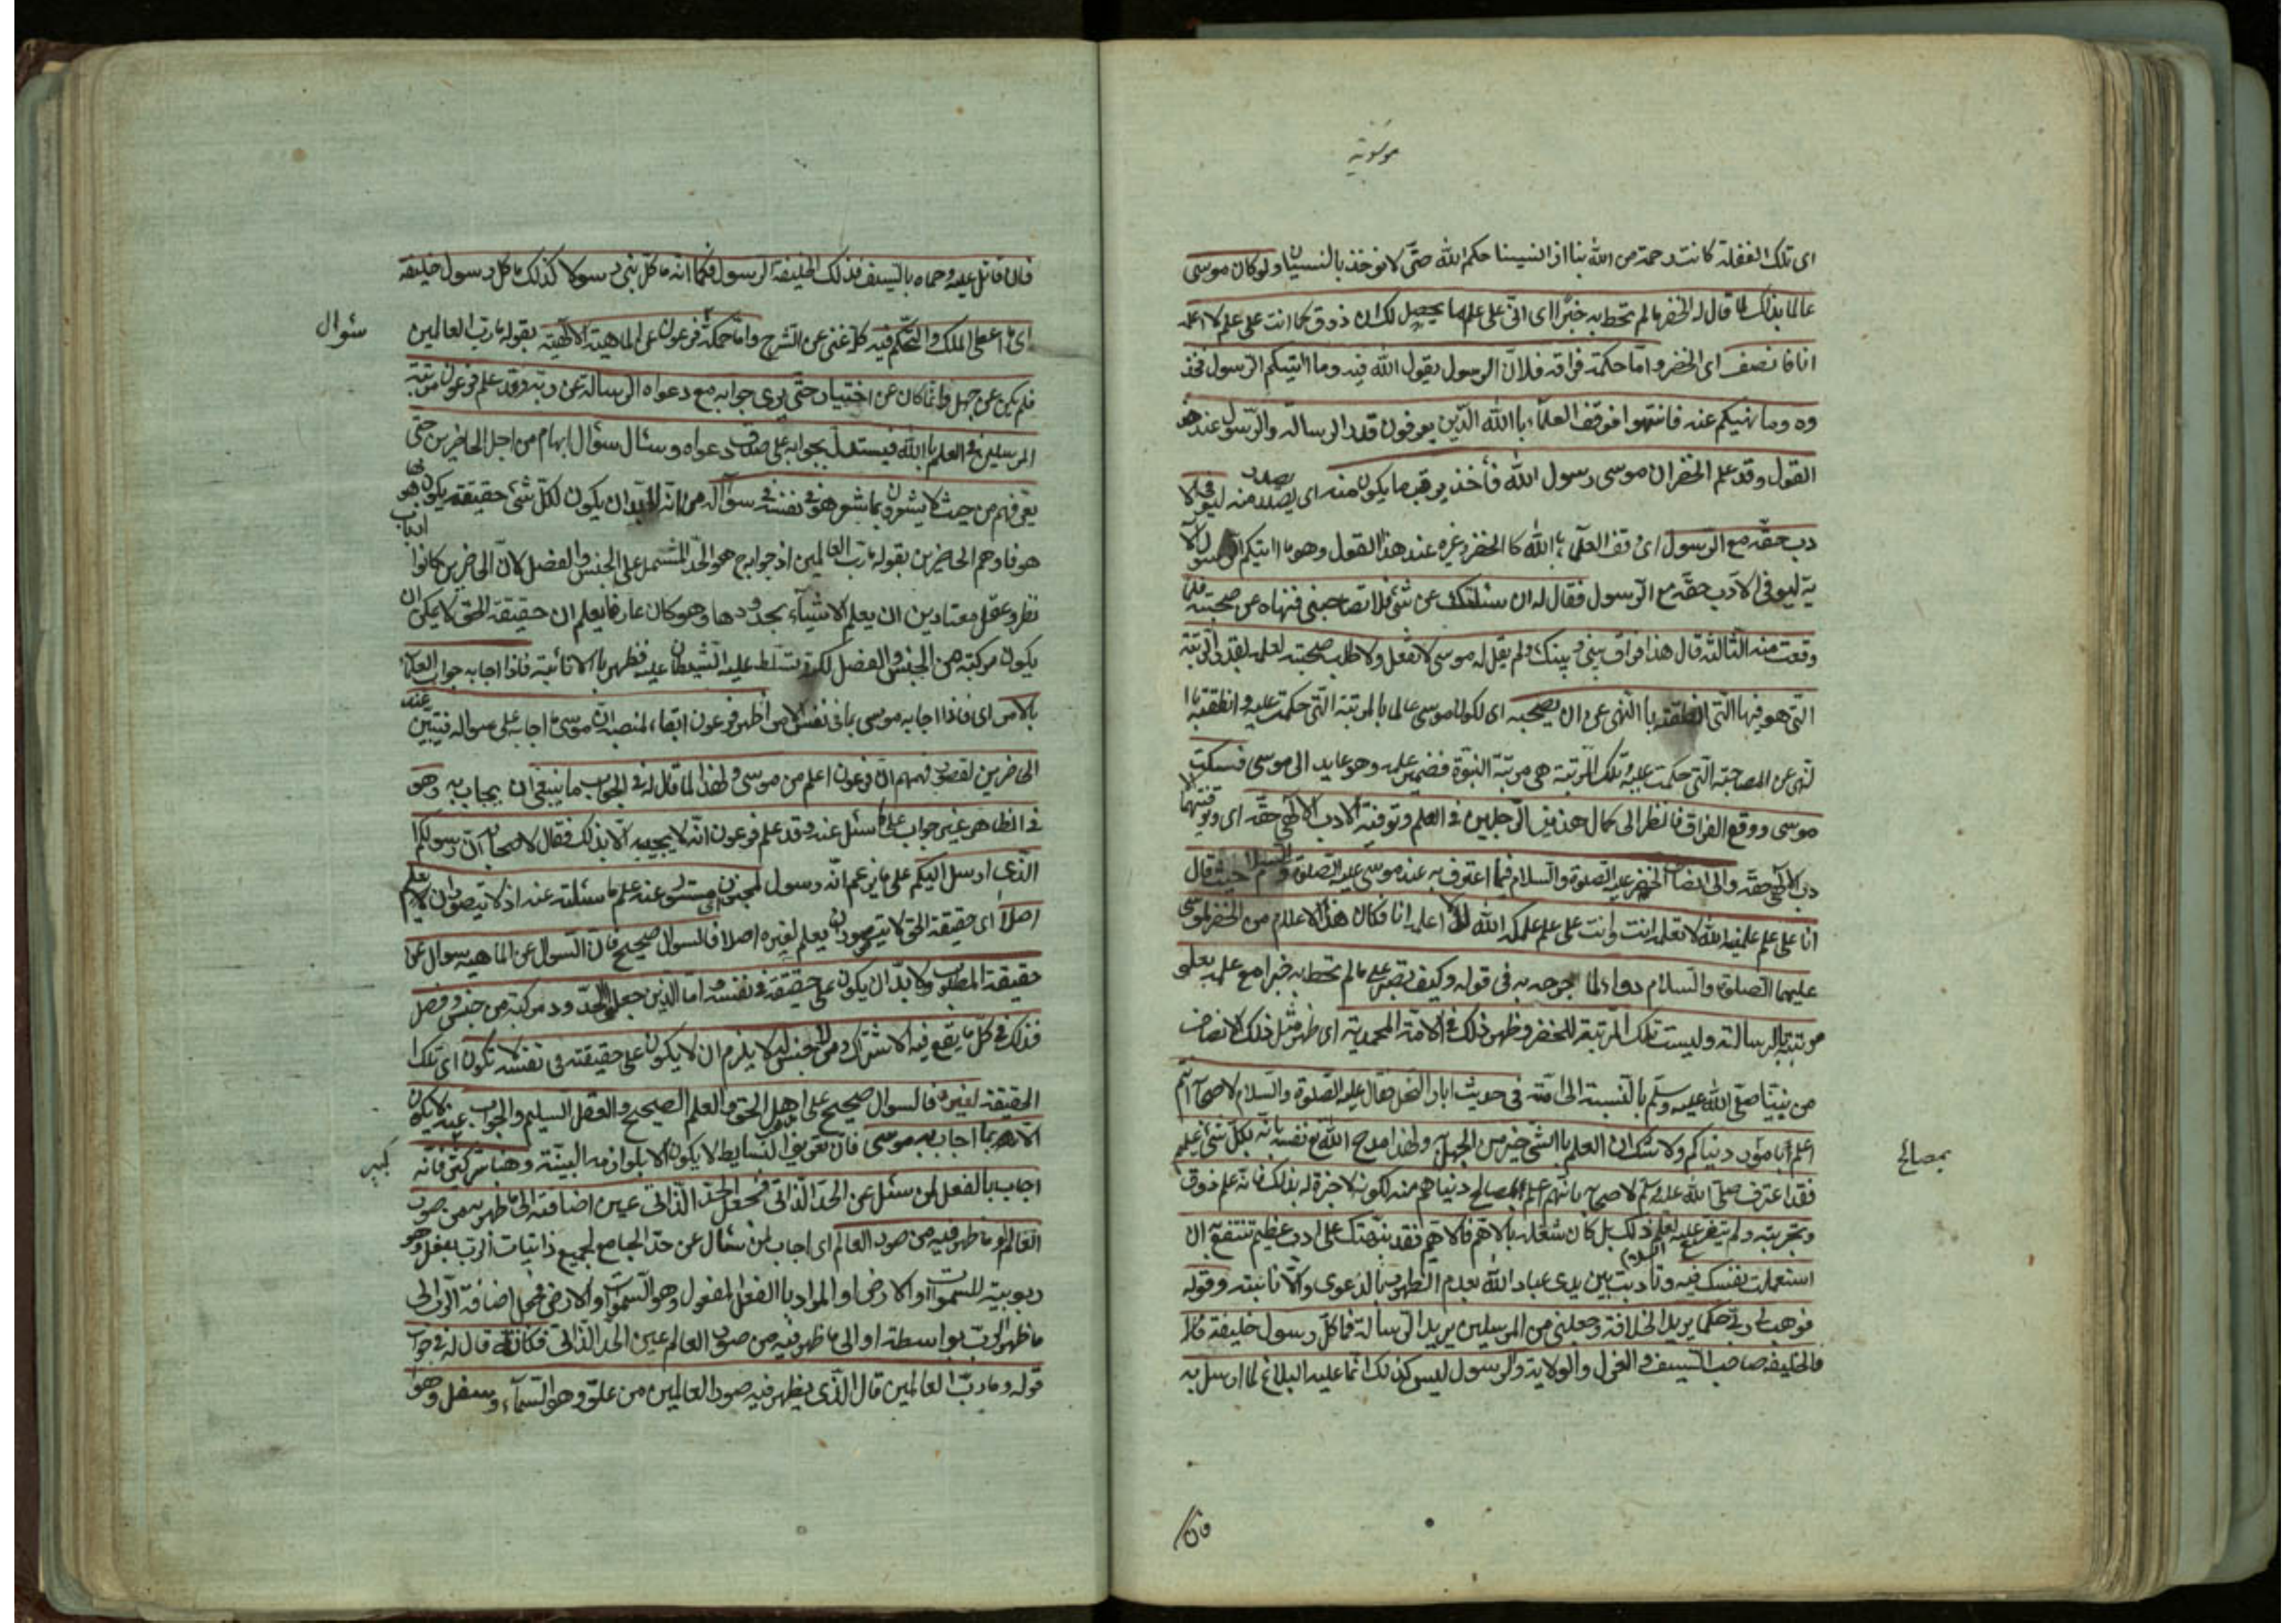 موسوية
اى تلك الغفلة كانت رحمة من الله بنا اذ انسينا حكم الله حتى لا نوخذ بالنسيان ولو كان موسى
عالما بذلك لما قال له الخضر ما لم تحط به خبرا اى انى على علم ما يحصل لك ان ذوق كما انت على علم لا اعلمه
انا فانصف اى الخضر واما حكمة فراقه فلان الرسول يقول الله فيه وما اتيكم الرسول فخذ
وه وما نهيكم عنه فانتهوا فوقف العلماء باالله الذين يعرفون قدر الرسالة والرسول عند هذا
القول وقد علم الخضر ان موسى رسول الله فأخذ يرقب ما يكون منه اى يصدر منه ليوفى الا
دب حقه مع الرسول اى وقف العلماء باالله كا الخضر وغيره عند هذا القول وهو ما اتيكم الرسول الآ
ية ليوفى الادب حقه مع الرسول فقال له ان سئلتك عن شئ فلا تصاحبنى فنهاه عن صحبته فلما
وقعت منه الثالثة قال هذا فراق بينى وبينك ولم يقل له موسى لا تفعل ولا طلب صحبته لعلمه بقدر الرتبة
التى هو فيها التى انطقته باالنهى عن ان يصحبه اى لكون موسى عالما بالمرتبة التى حكمت عليه وانطقته با
لنهى عن المصاحبة التى حكمت عليه وتلك المرتبة هى مرتبة النبوة فضمير علمه وهو عايد الى موسى فسكت
موسى ووقع الفراق فانظر الى كمال هذين الرجلين فى العلم وتوفية الادب الالهى حقه اى وتوفيتهما الا
دب الالهى حقه والى انصاف الخضر عليه الصلوة والسلام فيما اعترف به عند موسى عليه الصلوة والسلام حيث قال
انا على علم علمنيه الله لا تعلمه انت وانت على علم علمكه الله لا اعلمه انا فكان هذا الاعلام من الخضر لموسى
عليهما الصلوة والسلام دواء لما جرحه به فى قوله وكيف تصبر على ما لم تحط به خبرا مع علمه بعلو
مرتبته بالرسالة وليست تلك المرتبة للخضر وظهر ذلك فى الامة المحمدية اى ظهر مثل ذلك الانصاف
من نبينا صلى الله عليه وسلم بالنسبة الى امته فى حديث ابار النخل فقال عليه الصلوة والسلام لاصحابه انتم
اعلم بامور دنياكم ولا شك ان العلم باالشئ خير من الجهل به ولهذا مدح الله تع نفسه بانه بكل شئ عليم
بمصالح
فقد اعترف صلى الله عليه وسلم لاصحابه بانهم اعلم بمصالح دنياهم منه لكونه لا خبرة له بذلك فانه علم ذوق
وتجربة ولم يتفرغ عليه السلام لعلم ذلك بل كان شغله بالاهم فالاهم فقد نبهتك على ادب عظيم تنتفع به ان
استعملت نفسك فيه وتادبت بين يدى عباد الله بعدم الظهور بالدعوى والانانية وقوله
فوهب لى ربى حكما يريد الخلافة وجعلنى من المرسلين يريد الرسالة فما كل رسول خليفة
فالخليفة صاحب السيف والعزل والولاية والرسول ليس كذلك انما عليه البلاغ لما ارسل به
فان
فان قاتل عليه وحماه بالسيف فذلك الخليفة الرسول فكما انه ما كل نبى رسولا كذلك ما كل رسول خليفة
سئوال
اى ما اعطى الملك والتحكم فيه كله غنى عن الشرح واما حكمة فرعون عن الماهية الالهية بقوله ما رب العالمين
فلم يكن عن جهل وانما كان عن اختبار حتى يرى جوابه مع دعواه الرسالة عن ربه وقد علم فرعون مرتبة
المرسلين فى العلم باالله فيستدل بجوابه على صدق دعواه وسئال سئوال ايهام من اجل الحاضرين حتى
يعرفهم من حيث لا يشعرون بما شعر هو فى نفسه فى سؤاله من انه لا بد ان يكون لكل شئ حقيقة يكون بها هو
هو فاوهم الحاضرين بقوله ما رب العالمين ان جوابه هو الحد المشتمل على الجنس والفصل لان الحاضرين كانوا ارباب
نظر وعقل معتادين ان يعلم الاشياء بحدودها وهو كان عارفا يعلم ان حقيقة الحق لا يمكن ان
يكون مركبة من الجنس والفصل لكن تسلط عليه الشيطان عليه فظهر بالانانية فاذا اجابه جواب العلماء
بالامر اى فاذا اجابه موسى بما فى نفس الامر اظهر فرعون ابقاء لمنصبه ان موسى ما اجابه على سواله فيتبين عند
الحاضرين لقصور فهمهم ان فرعون اعلم من موسى ولهذا لما قال له فى الجواب ما ينبغى ان يجاب به وهو
فى الظاهر غير جواب على ما سئل عنه وقد علم فرعون انه لا يجيبه الا بذلك فقال لاصحابه ان رسولكم
الذى ارسل اليكم على ما يزعم انه رسول لمجنون اى مستور عنه علم ما سئلته عنه اذ لا يتصور ان يعلم
اصلا اى حقيقة الحق لا يتصور ان يعلم لغيره اصلا فالسوال صحيح فان السوال عن الماهية سوال عن
حقيقة المطلوب ولا بد ان يكون على حقيقة فى نفسه واما الذين جعلوا الحدود مركبة من جنس وفصل
فذلك فى كل ما يقع فيه الاشتراك ومن لا جنس له لا يلزم ان لا يكون على حقيقة فى نفسه تكون اى تلك
الحقيقة لغيره فالسوال صحيح على اهل الحق والعلم الصحيح والعقل السليم والجواب عنه لا يكون
الا بما اجاب به موسى فان تعريف البسايط لا يكون الا بلوازمه البينة وهنا سر كبير فانه
كبير
اجاب بالفعل لمن سئل عن الحد الذاتى فجعل الحد الذاتى عين اضافته الى ما ظهر به من صور
العالم او ما ظهر فيه من صور العالم اى اجاب لمن سئال عن حد الجامع لجميع ذاتيات الرب بفعل وهو
ربوبية للسموات والارض والمراد باالفعل المفعول وهو السموات والارض فجعل اضافة الرب الى
ما ظهر الرب بواسطته او الى ما ظهر فيه من صور العالم عين الحد الذاتى فكانه قال له فى جواب
قوله وما رب العالمين قال الذى يظهر فيه صور العالمين من علو وهو السماء وسفل وهو